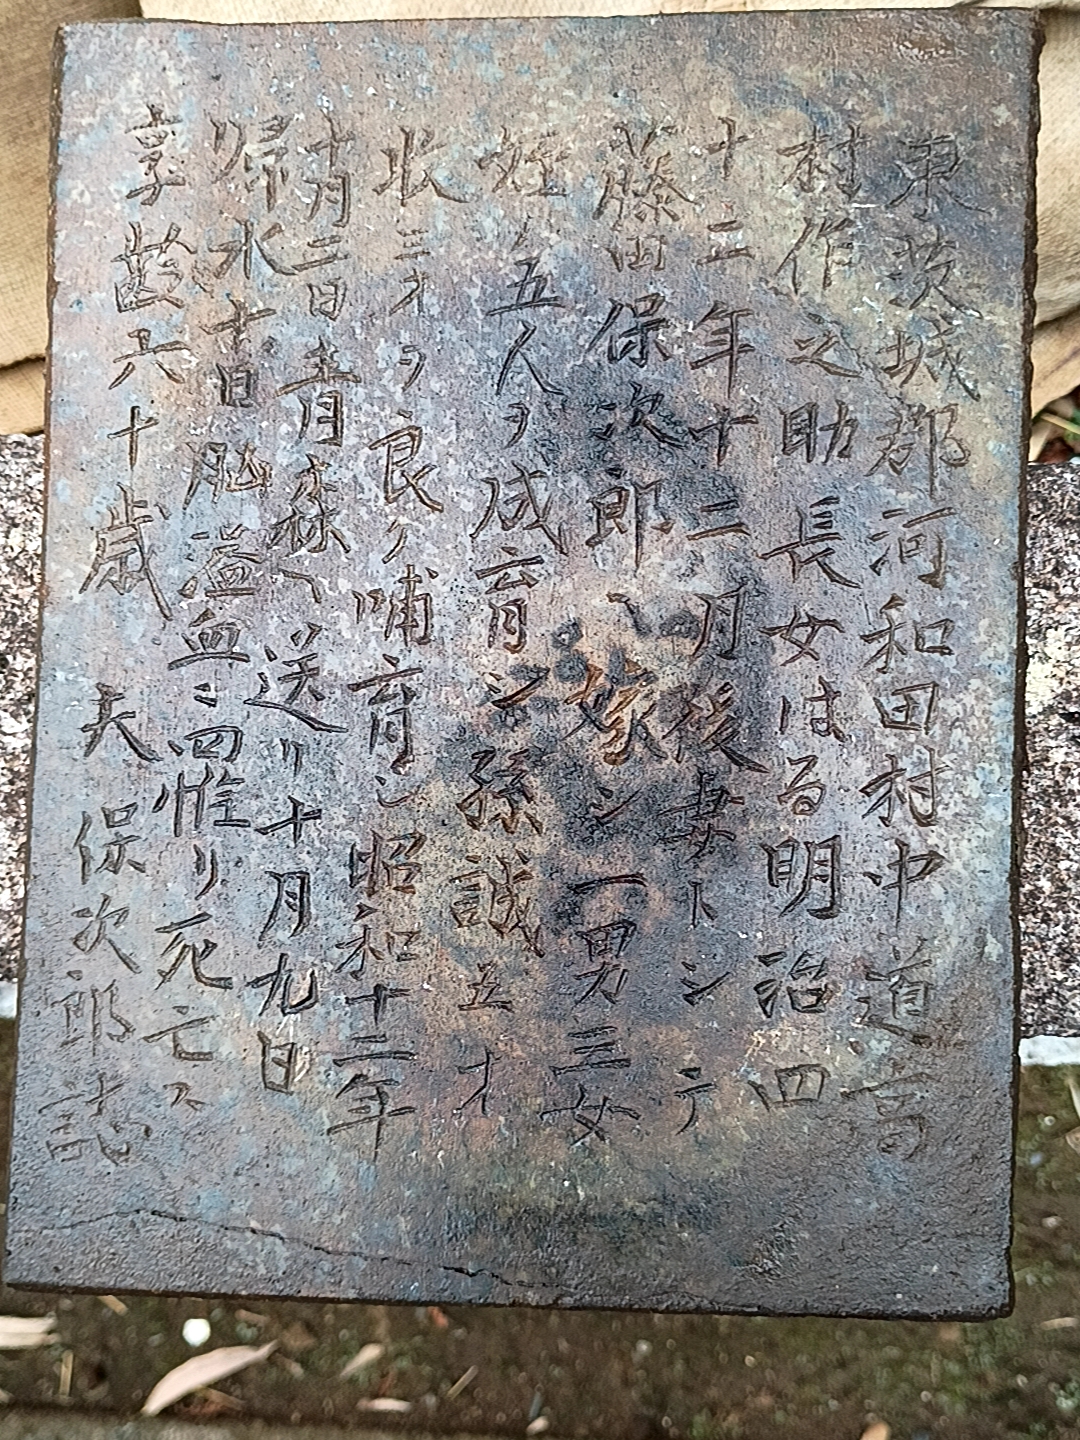 東茨城郡河和田村中道高
村作之助長女はる明治四
十二年十二月後妻トシテ
藤田保次郎ヘ嫁シ一男三女
姪五人ヲ成育シ孫誠五才
收三才ヲ良ク哺育シ昭和十二年
十月二日青森ヘ送リ十月九日
歸水十一日脳溢血ニ罹リ死亡ス
享齢六十歳 夫 保次郎誌